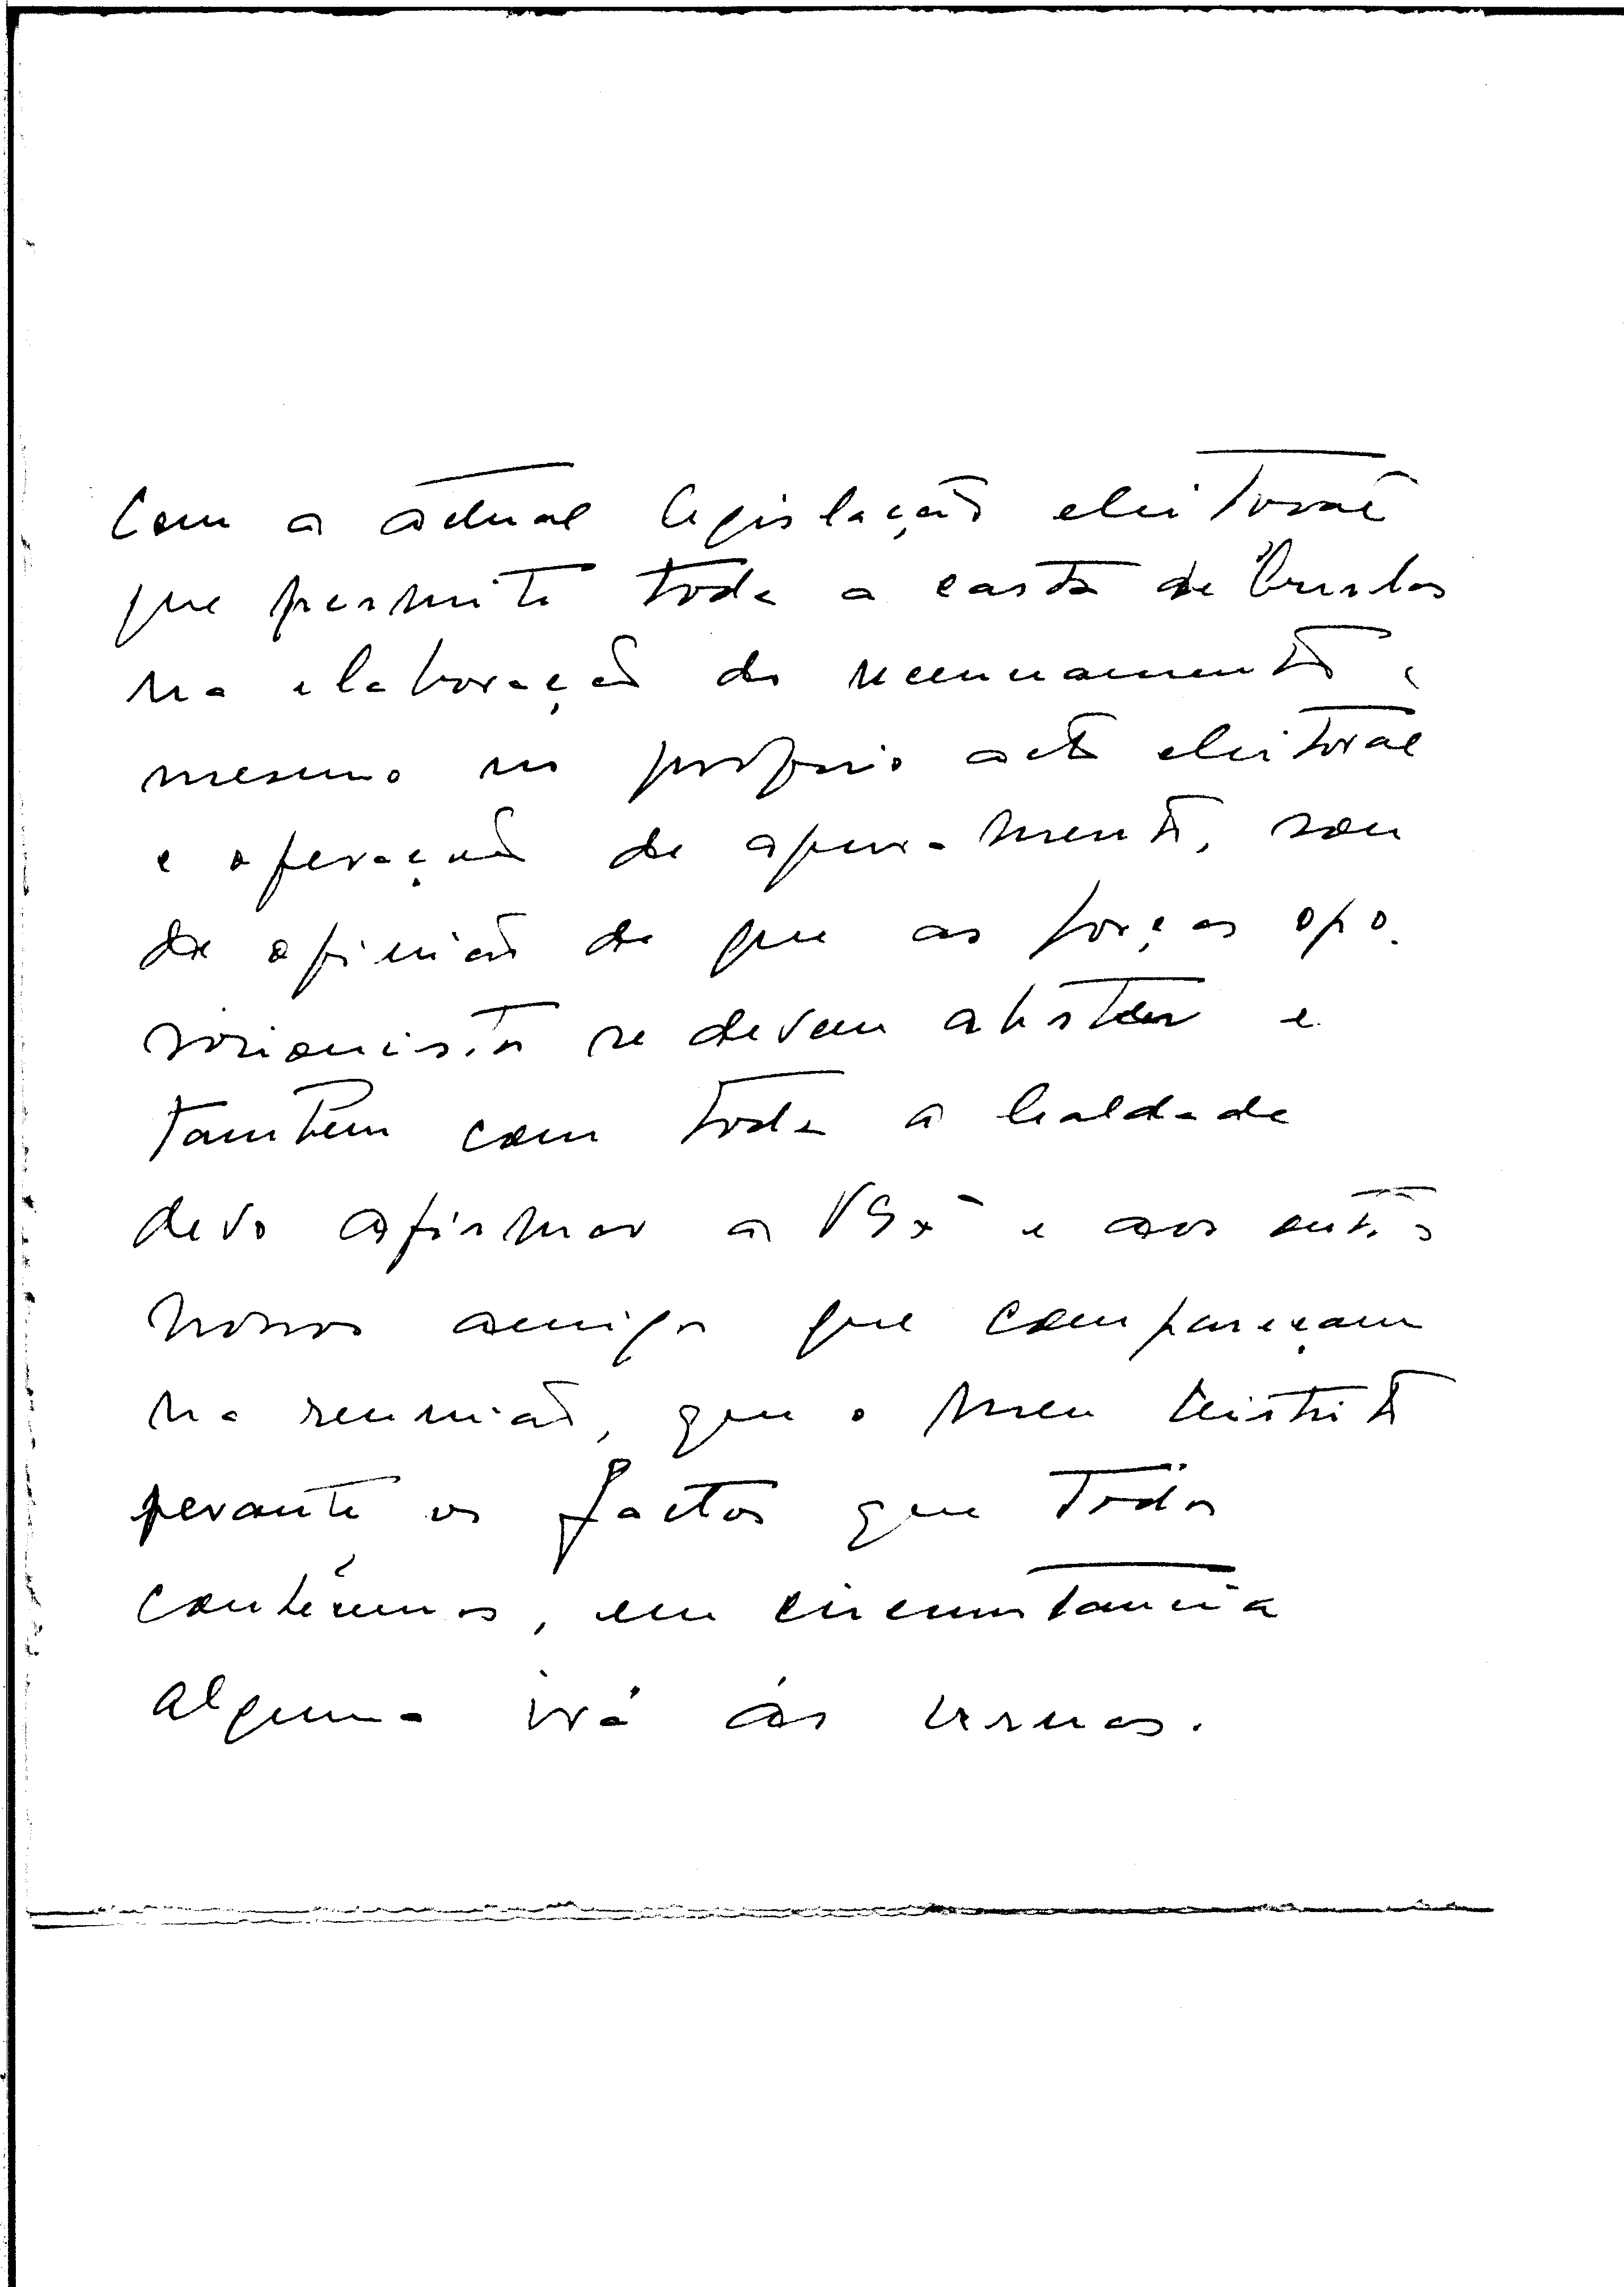 Com a actual legislação eleitoral
que permite toda a casta de burlas
na elaboração do recenseamento e
mesmo no proprio acto eleitoral
e operação de apuramento, sou
de opinião de que as forças opo-
sicionistas se devem abster e
tambem com toda a lealdade
devo afirmar a V Exª e aos outros
nossos amigos que compareçam
na reunião, que o meu distrito
perante os factos que todos
conhecemos, em circunstancia
alguma irá ás urnas.